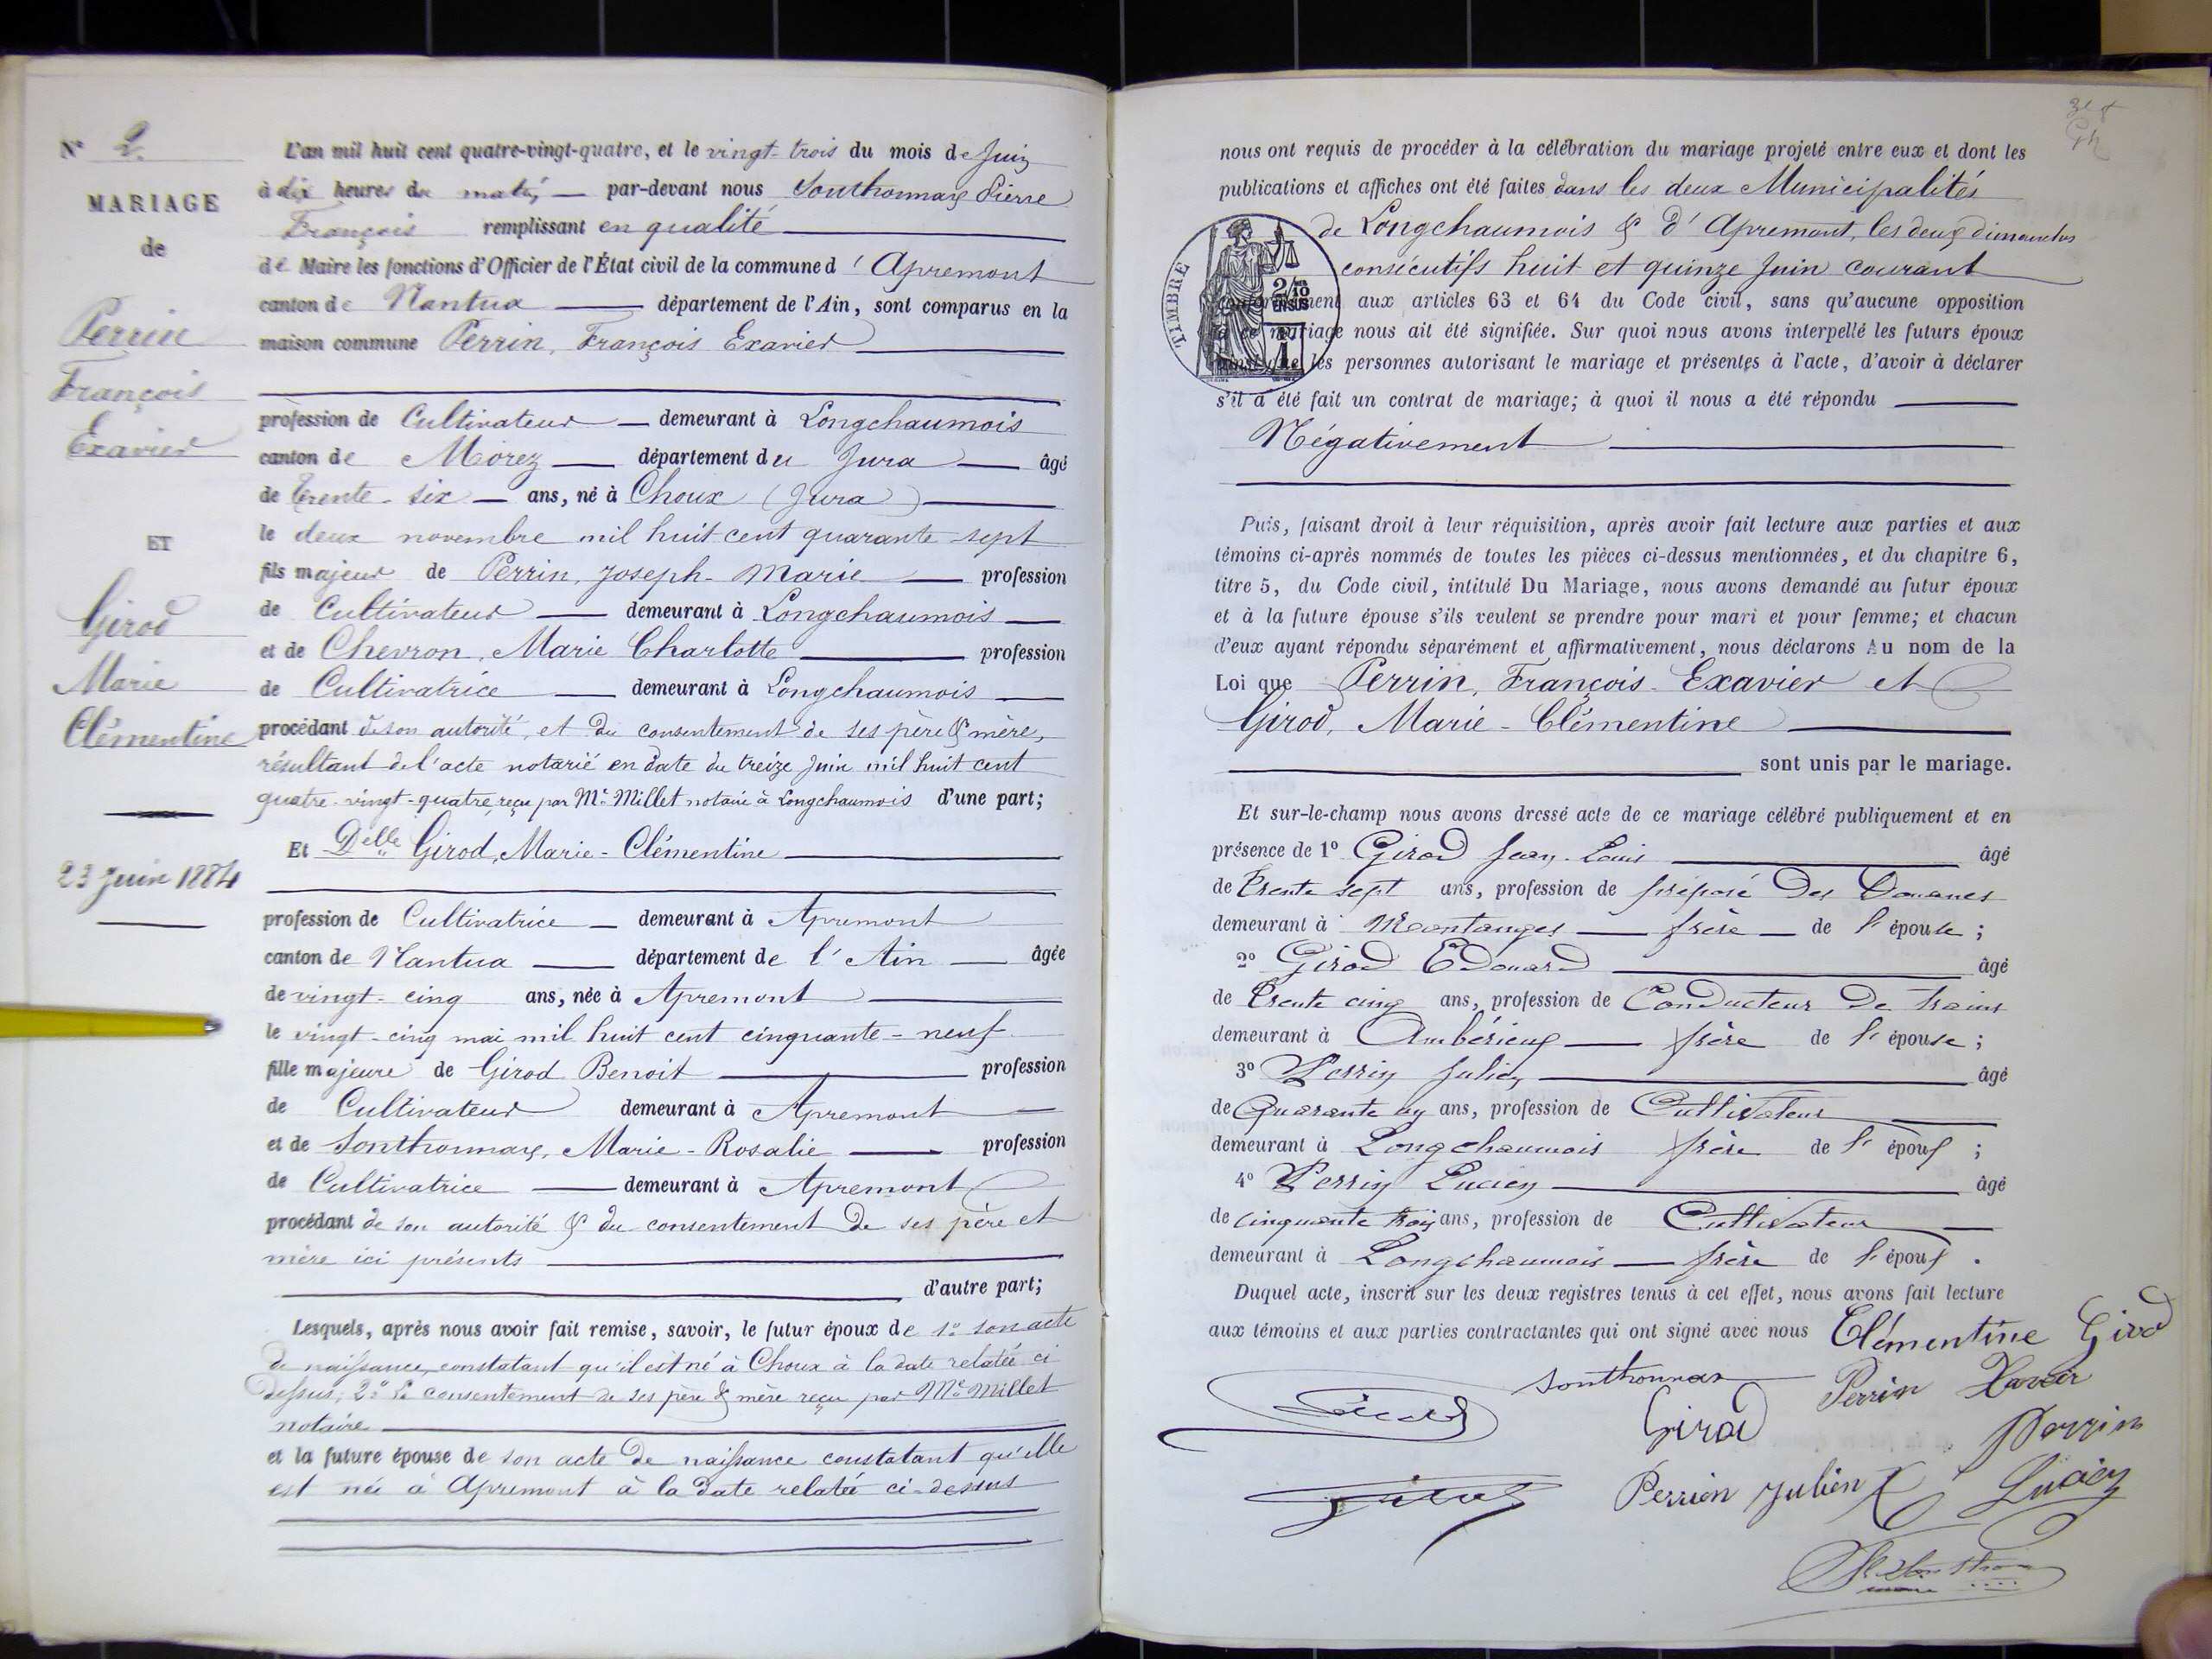 Nº 2.
MARIAGE
de
Perrin
François
Exavier
ET
Girod
Marie
Clémentine
23 Juin 1884
L'an mil huit cent quatre-vingt-quatre, et le vingt-trois du mois de Juin
à dix heures du matin par-devant nous Sonthonnax Pierre
François remplissant en qualité
de Maire les fonctions d'Officier de l'État civil de la commune d'Apremont
canton de Nantua département de l'Ain, sont comparus en la
maison commune Perrin, François Exavier
profession de Cultivateur demeurant à Longchaumois
canton de Morez département du Jura âgé
de trente-six ans, né à Choux (Jura)
le deux novembre mil huit cent quarante-sept
fils majeur de Perrin, Joseph-Marie profession
de Cultivateur demeurant à Longchaumois
et de Chevron, Marie Charlotte profession
de Cultivatrice demeurant à Longchaumois
procédant de son autorité, et du consentement de ses père & mère,
résultant de l'acte notarié en date du treize Juin mil huit cent
quatre-vingt-quatre, reçu par Me Millet notaire à Longchaumois d'une part;
Et Delle Girod, Marie-Clémentine
profession de Cultivatrice demeurant à Apremont
canton de Nantua département de l'Ain âgée
de vingt-cinq ans, née à Apremont
le vingt-cinq mai mil huit cent cinquante-neuf
fille majeure de Girod Benoit profession
de Cultivateur demeurant à Apremont
et de Sonthonnax, Marie-Rosalie profession
de Cultivatrice demeurant à Apremont
procédant de son autorité & du consentement de ses père et
mère ici présents
d'autre part;
Lesquels, après nous avoir fait remise, savoir, le futur époux de 1º son acte
de naissance, constatant qu'il est né à Choux à la date relatée ci
dessus; 2º le consentement de ses père & mère reçu par Me Millet
notaire
et la future épouse de son acte de naissance constatant qu'elle
est née à Apremont à la date relatée ci-dessus
nous ont requis de procéder à la célébration du mariage projeté entre eux et dont les
publications et affiches ont été faites dans les deux Municipalités
de Longchaumois & d'Apremont, les deux dimanches
consécutifs huit et quinze Juin courant
TIMBRE
2/10 EN SUS
conformément aux articles 63 et 64 du Code civil, sans qu'aucune opposition
à ce mariage nous ait été signifiée. Sur quoi nous avons interpellé les futurs époux
ainsi que les personnes autorisant le mariage et présentes à l'acte, d'avoir à déclarer
s'il a été fait un contrat de mariage; à quoi il nous a été répondu
Négativement
Puis, faisant droit à leur réquisition, après avoir fait lecture aux parties et aux
témoins ci-après nommés de toutes les pièces ci-dessus mentionnées, et du chapitre 6,
titre 5, du Code civil, intitulé Du Mariage, nous avons demandé au futur époux
et à la future épouse s'ils veulent se prendre pour mari et pour femme; et chacun
d'eux ayant répondu séparément et affirmativement, nous déclarons Au nom de la
Loi que Perrin, François-Exavier et
Girod, Marie-Clémentine
sont unis par le mariage.
Et sur-le-champ nous avons dressé acte de ce mariage célébré publiquement et en
présence de 1º Girod Jean-Louis âgé
de trente sept ans, profession de préposé des Douanes
demeurant à Montanges frère de l'épouse;
2º Girod Edouard âgé
de trente cinq ans, profession de Conducteur de trains
demeurant à Ambérieux frère de l'épouse;
3º Perrin Julien âgé
de Quarante un ans, profession de Cultivateur
demeurant à Longchaumois frère de l'époux;
4º Perrin Lucien âgé
de cinquante trois ans, profession de Cultivateur
demeurant à Longchaumois frère de l'époux.
Duquel acte, inscrit sur les deux registres tenus à cet effet, nous avons fait lecture
aux témoins et aux parties contractantes qui ont signé avec nous Clémentine Girod
Sonthonnax Perrin Xavier
Girod Perrin
Perrion Julien Lucien